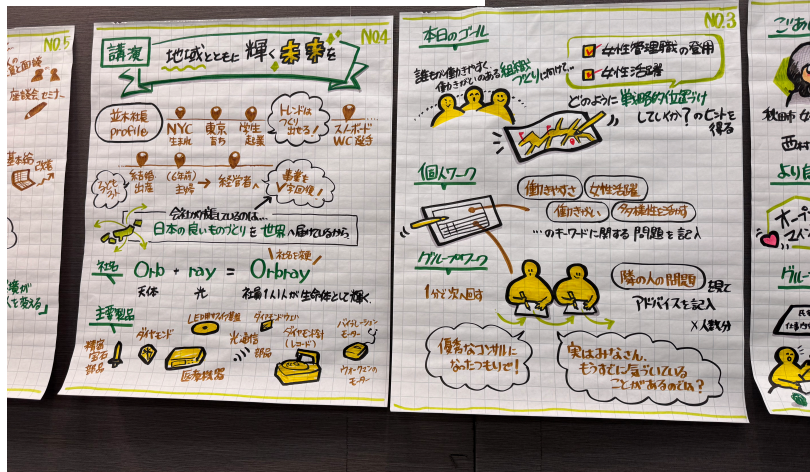 NO.5
座談会セミナー
基本給
改善
人を変える」
NO.4
講演 地域とともに輝く未来を
並木社長
profile
NYC
生まれ
東京
育ち
学生
起業
トレンドは
つくり
出せる!
スノボード
WC
結婚
出産
(6年間)
主婦
→ 経営者へ
事業を
V字回復!
会社が
日本の良いものづくりを世界へ届けているから
社名 Orb + ray = Orbray
社名変更
天体 光 社員1人1人が生命体として輝く
主要製品
精密
宝石
部品
ダイヤモンド
医療機器
光通信
部品
ダイヤモンド針
(レコード)
バイブレーション
モーター
ウォークマンの
モーター
NO.3
本日のゴール
誰もが働きやすく
働きがいのある組織
づくりに向けて…
女性管理職の登用
女性活躍
どのように戦略的位置づけ
していくか?のヒントを
得る
個人ワーク
働きやすさ 女性活躍
働きがい 多様性を活かす
…のキーワードに関する問題を記入
グループワーク
1分で次へ回す
隣の人の問題
アドバイスを記入
×人数分
優秀なコンサルに
なったつもりで!
実はみなさん、
もうすでに気づいている
ことがあるのでは?
ごあ
秋田市
西村
より
オープ
グル